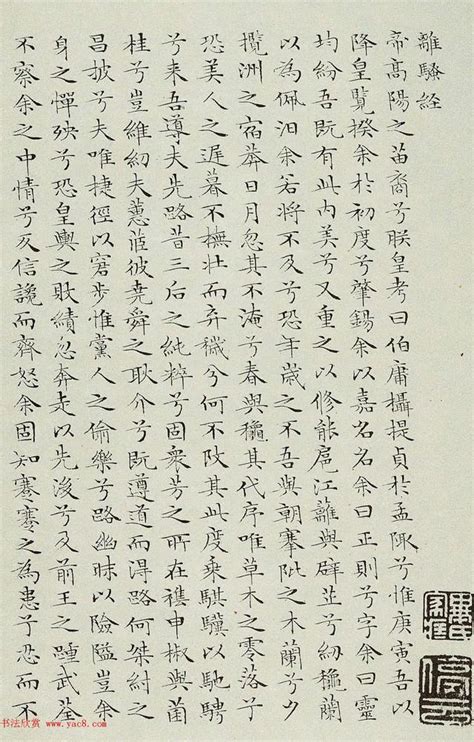 離騷経
帝髙陽之苗裔兮朕皇考曰伯庸攝提貞於孟陬兮惟庚寅吾以
降皇覽揆余於初度兮肇錫余以嘉名名余曰正則兮字余曰靈
均紛吾既有此内美兮又重之以修能扈江離與辟芷兮紉穐蘭
以為佩汨余若将不及兮恐年歲之不吾與朝搴阰之木蘭兮夕
攬洲之宿莽日月忽其不淹兮春與穐其代序唯草木之零落兮
恐美人之遲暮不撫壮而弃穢兮何不改其此度乗騏驥以馳騁
兮来吾導夫先路昔三后之純粹兮固衆芳之所在雜申椒與菌
桂兮豈維紉夫蕙茝彼堯舜之耿介兮既遵道而得路何桀紂之
昌披兮夫唯捷徑以窘步惟黨人之偷樂兮路幽昧以險隘豈余
身之憚殃兮恐皇輿之敗績忽奔走以先後兮及前王之踵武荃
不察余之中情兮反信讒而齊怒余固知謇謇之為患兮忍而不
书法欣赏 www.yac8.com